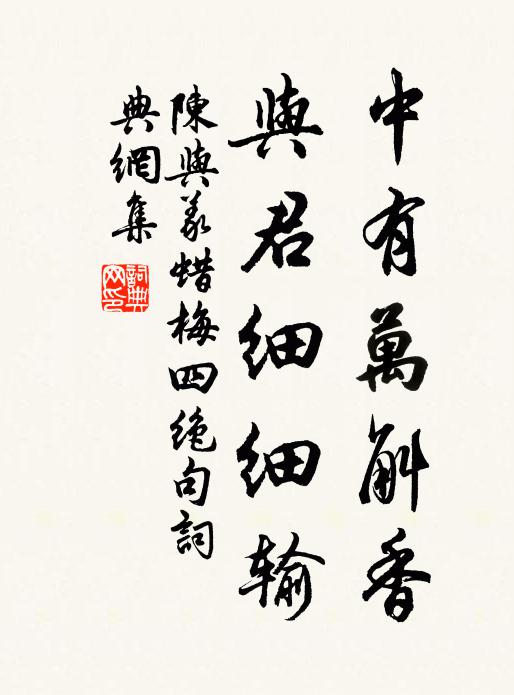 中有萬斛香
與君細細输
陳與義蜡梅四绝句詞
典網集
詞典网印